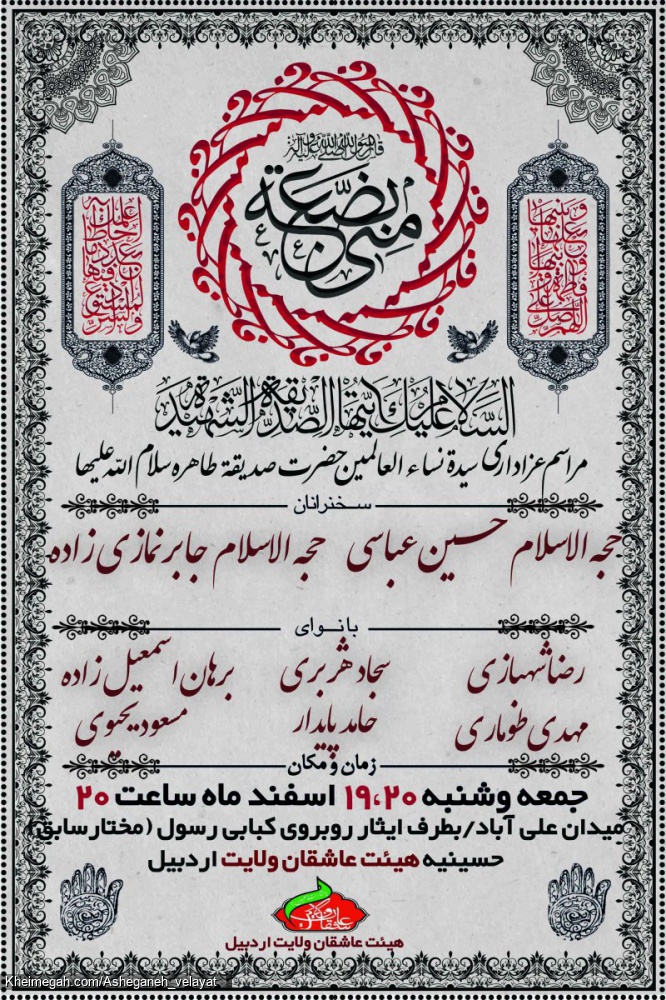 قال رسول الله صلی الله علیه وآله
بضعة منی
السلام علیك ایتها الصدیقة الشهیدة
مراسم عزاداری سیدة نساء العالمین حضرت صدیقة طاهره سلام الله علیها
سخنرانان
حجه الاسلام حسین عباسی حجه الاسلام جابر نمازی زاده
بانوای
رضا شهبازی سجاد هربری برهان اسمعیل زاده
مهدی طوماری حامد پایدار مسعود یحیوی
زمان و مکان
جمعه وشنبه ۱۹،۲۰ اسفند ماه ساعت ۲۰
میدان علی آباد/بطرف ایثار روبروی کبابی رسول (مختارسابق)
حسینیه هیئت عاشقان ولایت اردبیل
هیئت عاشقان ولایت اردبیل
Kheimegah.com/Asheganeh_velayat